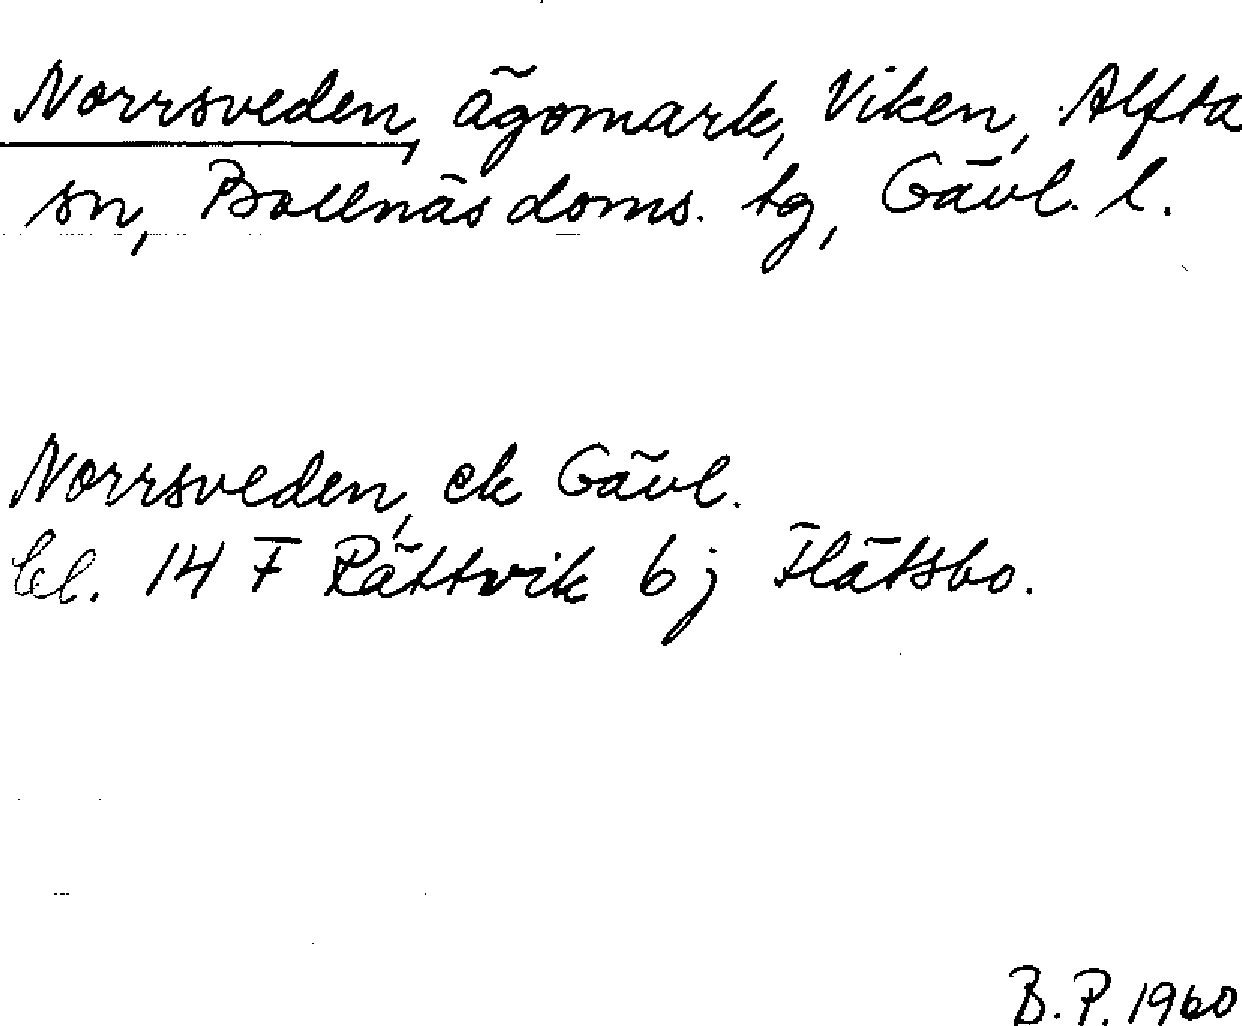 Norrsveden, ägomark, Viken, Alfta
sn, Bollnäs doms. tg, Gävl. l.
Norrsveden, ek Gävl.
bl. 14 F Rättvik 6 j Flätsbo.
B. P. 1960